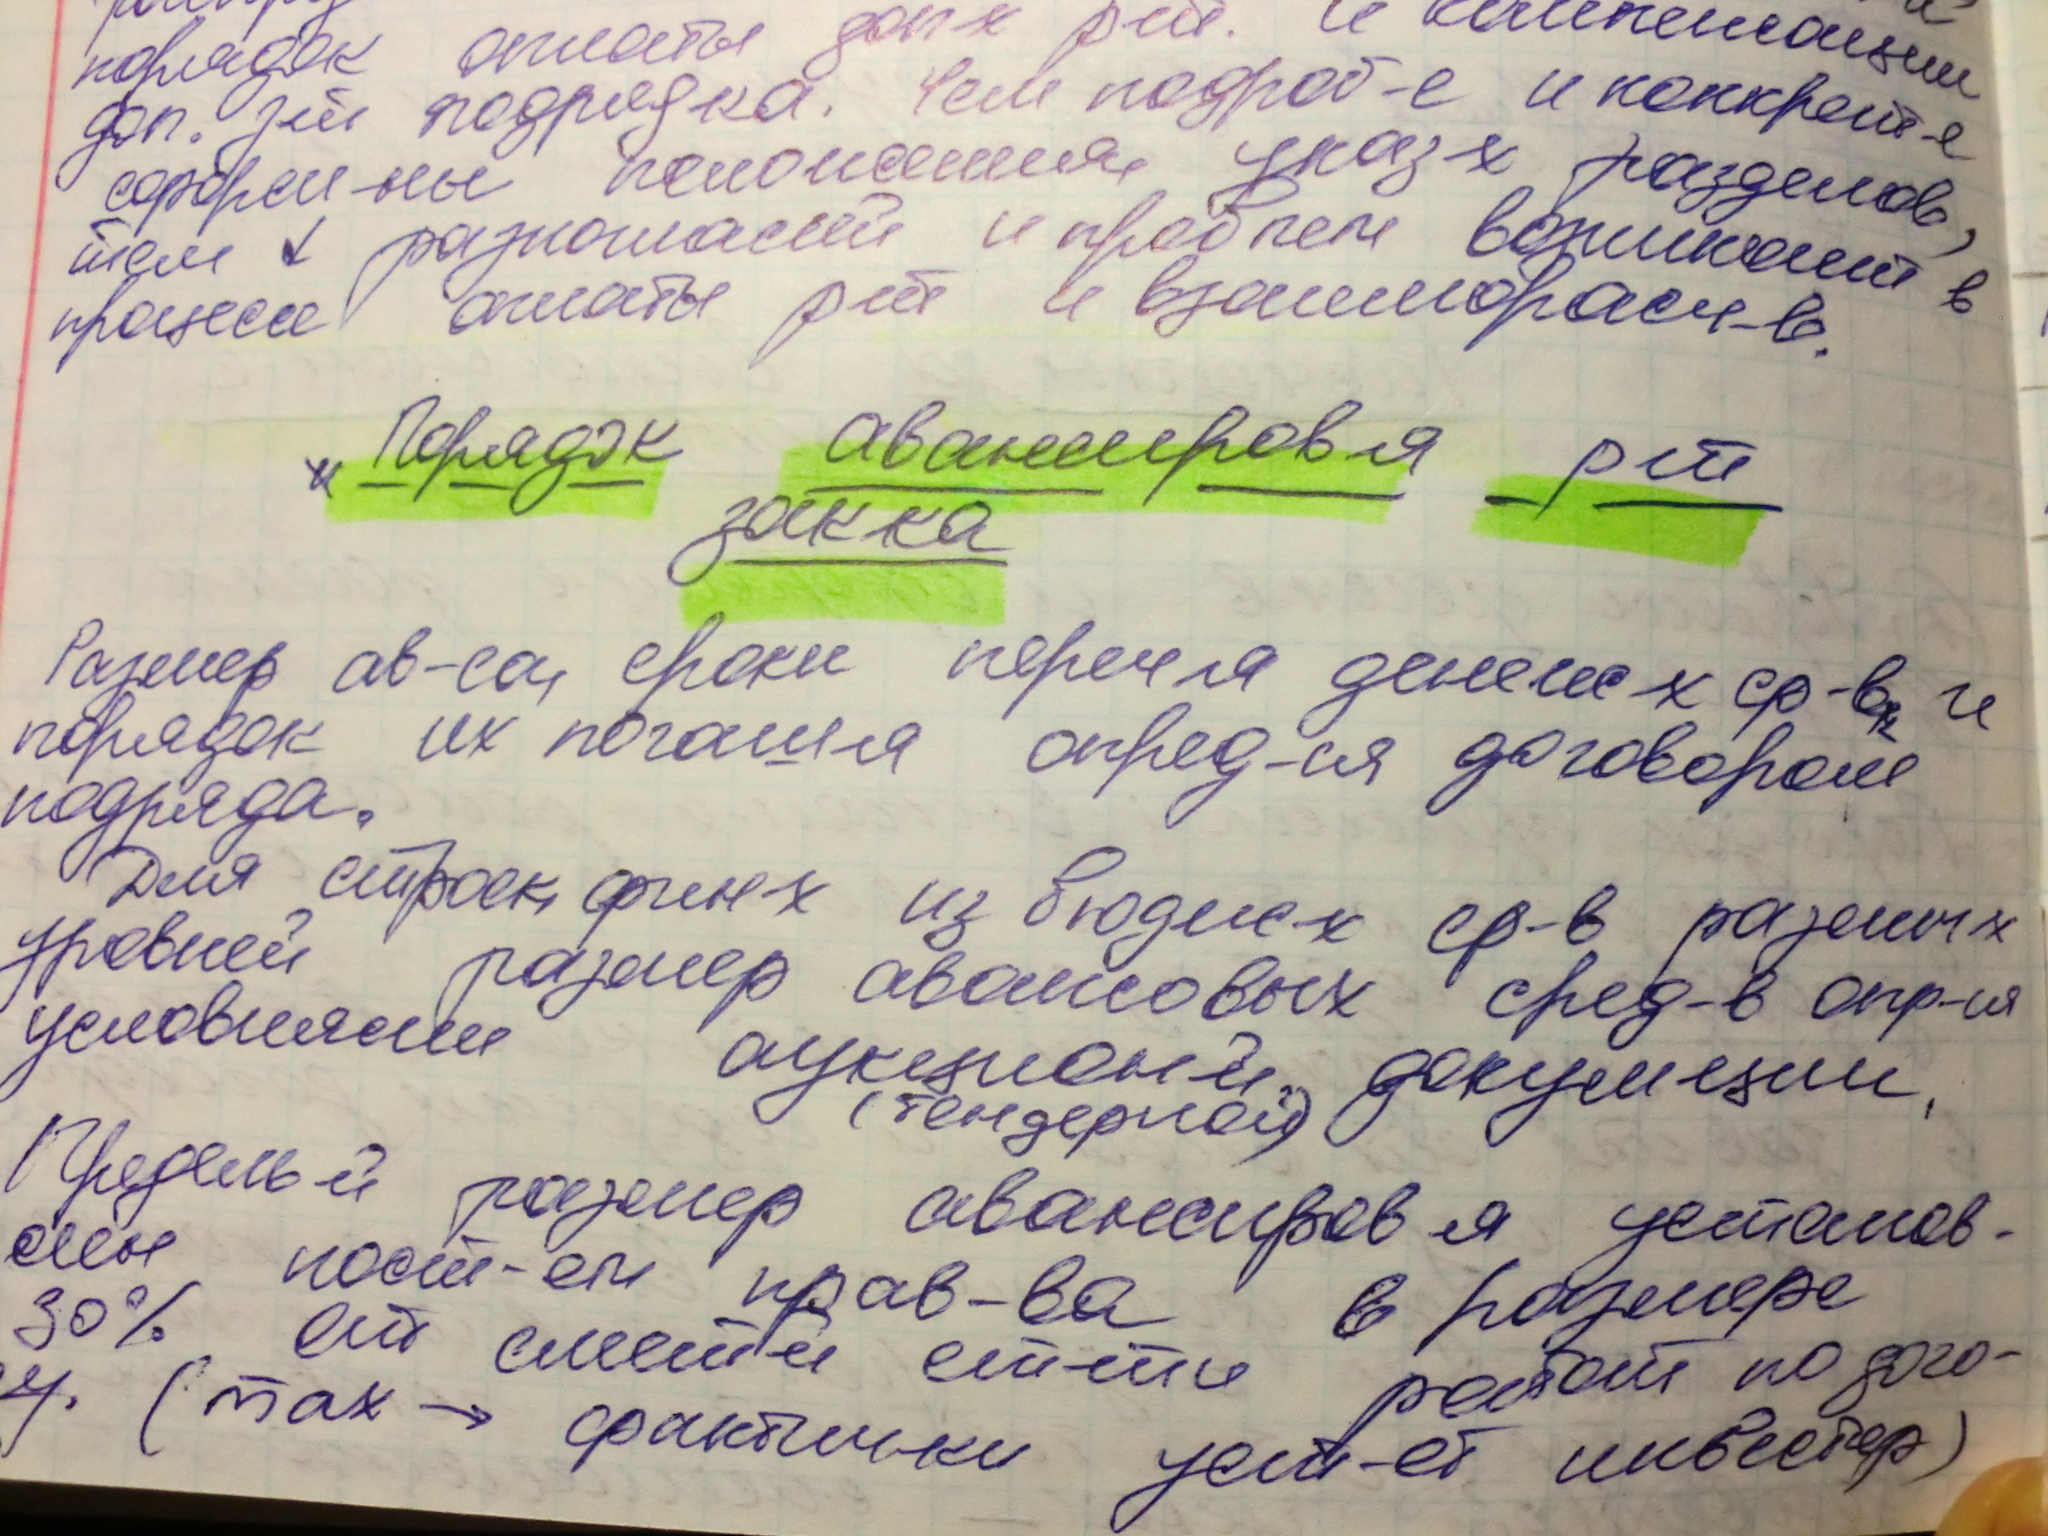 порядок оплаты доп-х р-т. и компенсации
доп. з-т подрядка. Чем подроб-е и конкрет-е
сформ-ны положения указ-х разделов,
тем ↓ разногласий и проблем возникает в
процессе оплаты р-т и взаиморасч-в.
× Порядок авансиров-я р-т
зак-ка
Размер ав-са, сроки переч-я денеж-х ср-в, и
порядок их погаш-я опред-ся договором
подряда.
Для строек, фин-х из бюдж-х ср-в разных
уровней размер авансовых сред-в опр-ся
условиями аукцион-й докум-ции,
(тендерной)
Предель-й размер авансиров-я установ-
лен пост-ем прав-ва в размере
30% от смет-й ст-ти работ по дого-
у. (max → фактич-ки уст-ет инвестор)